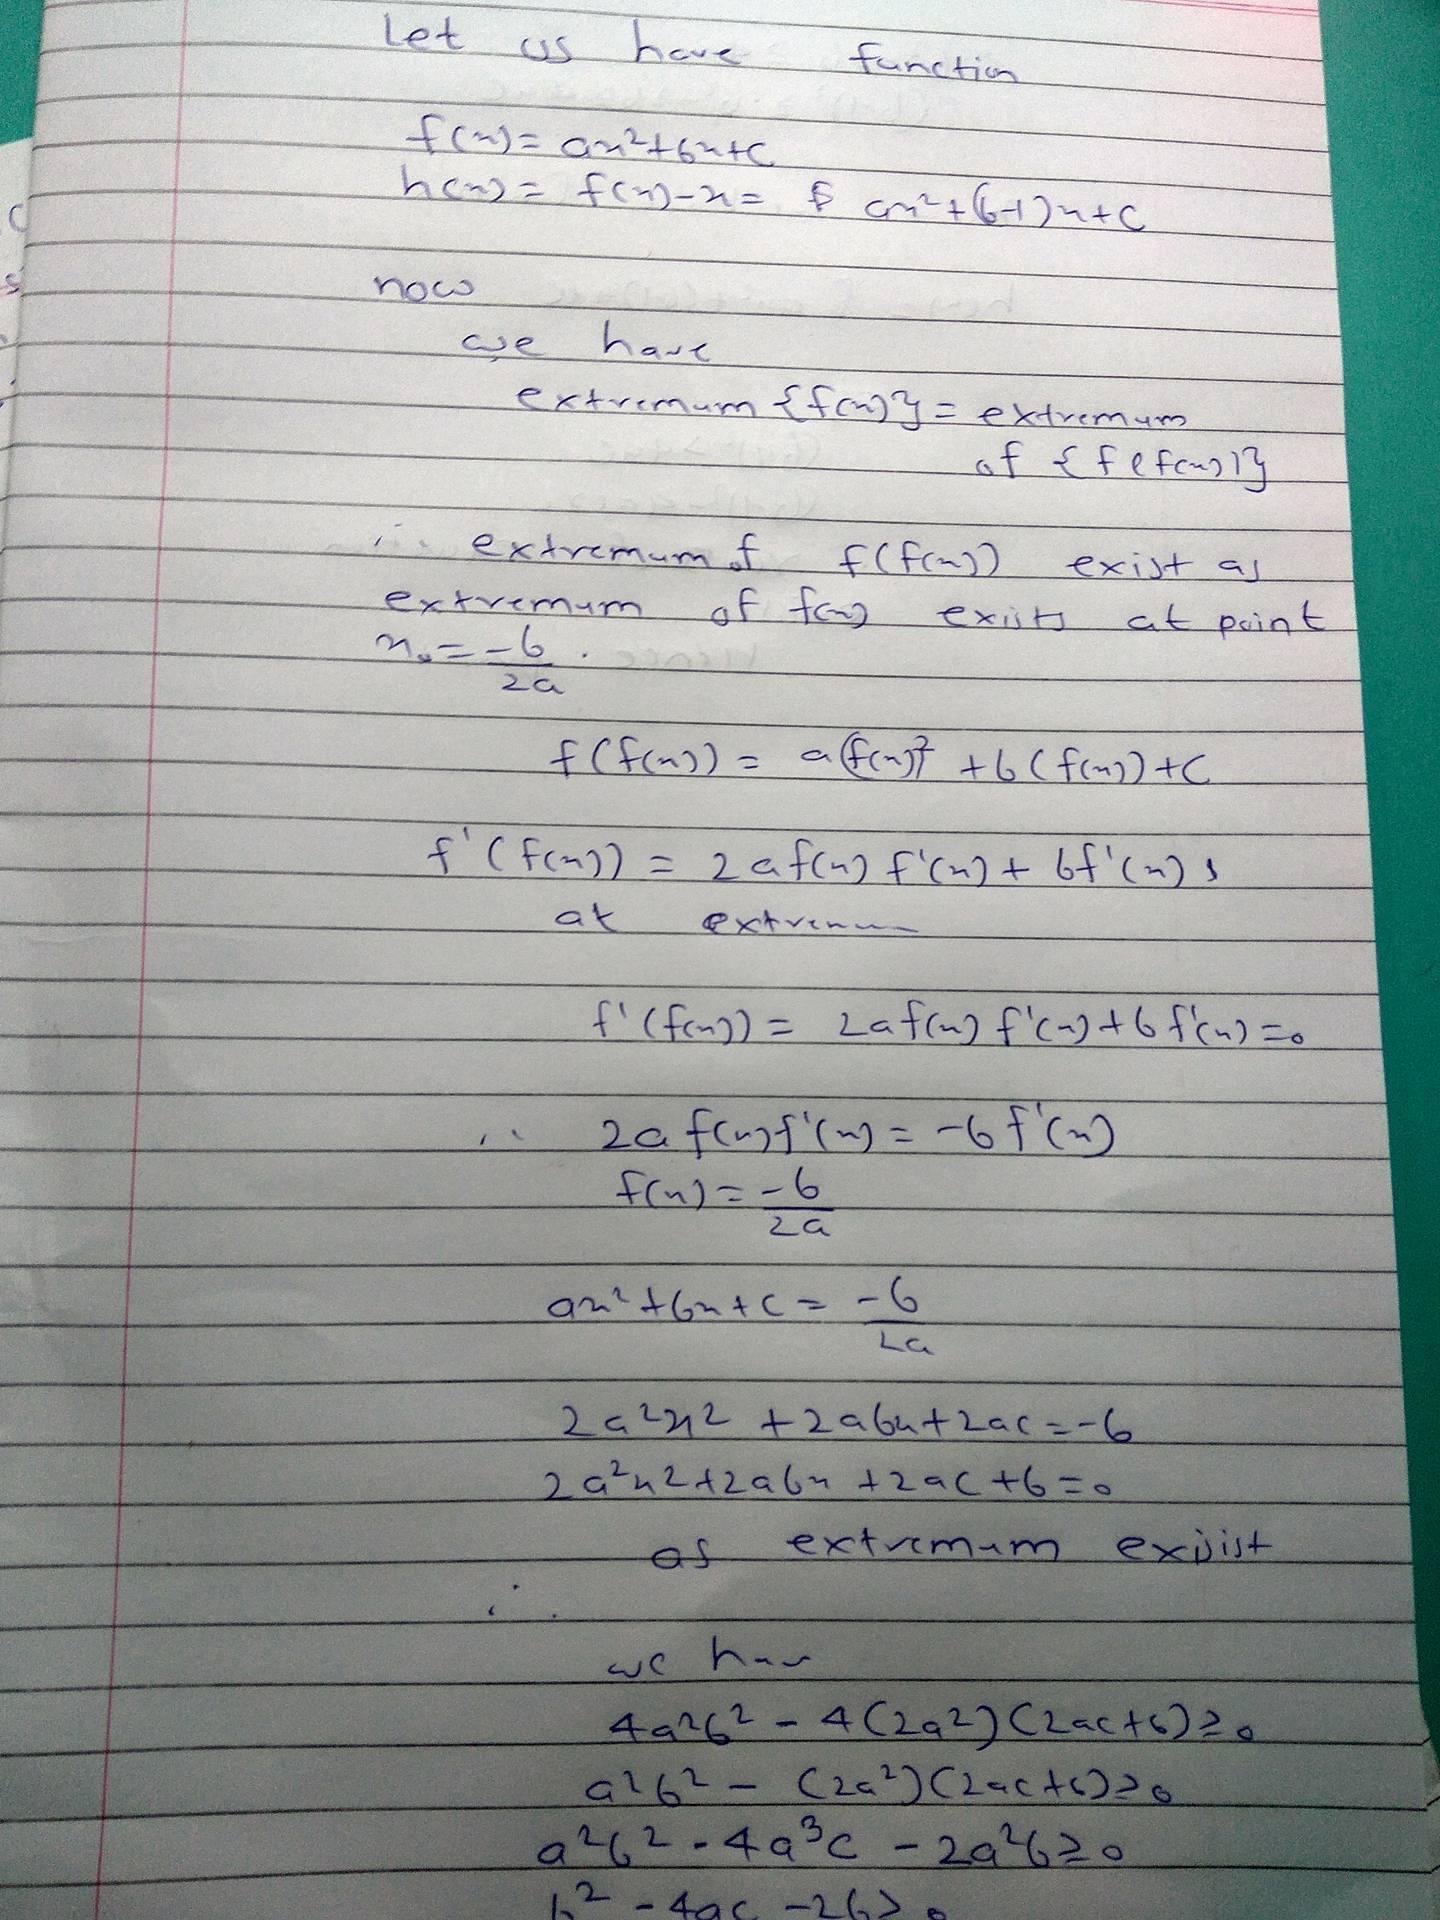 Let us have function
f(x) = ax²+bx+c
h(x) = f(x)-x = ax²+(b-1)x+c
now
we have
extremum {f(x)} = extremum
of {f(f(x))}
∴ extremum of f(f(x)) exist as
extremum of f(x) exists at point
x₀ = -b/2a .
f(f(x)) = a(f(x))² + b(f(x))+c
f'(f(x)) = 2af(x) f'(x) + bf'(x) s
at extremum
f'(f(x)) = 2af(x) f'(x) + b f'(x) = 0
∴ 2a f(x) f'(x) = -b f'(x)
f(x) = -b/2a
ax²+bx+c = -b/2a
2a²x² + 2abx + 2ac = -b
2a²x² + 2abx + 2ac + b = 0
as extremum exisist
∴
we have
4a²b² - 4(2a²)(2ac+b) ≥ 0
a²b² - (2a²)(2ac+b) ≥ 0
a²b² - 4a³c - 2a²b ≥ 0
b² - 4ac - 2b ≥ 0